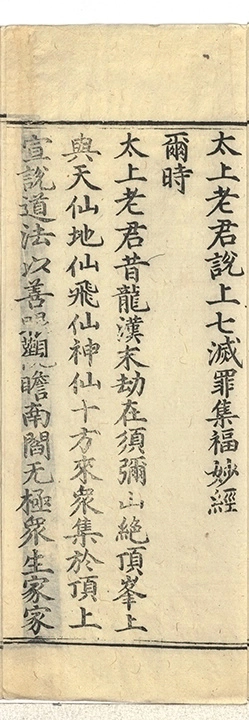 太上老君說上七滅罪集福妙經
爾時
太上老君昔龍漢末劫在須彌山絕頂峯上
與天仙地仙飛仙神仙十方來衆集於頂上
宣說道法以善眼觀瞻南閻无極衆生家家